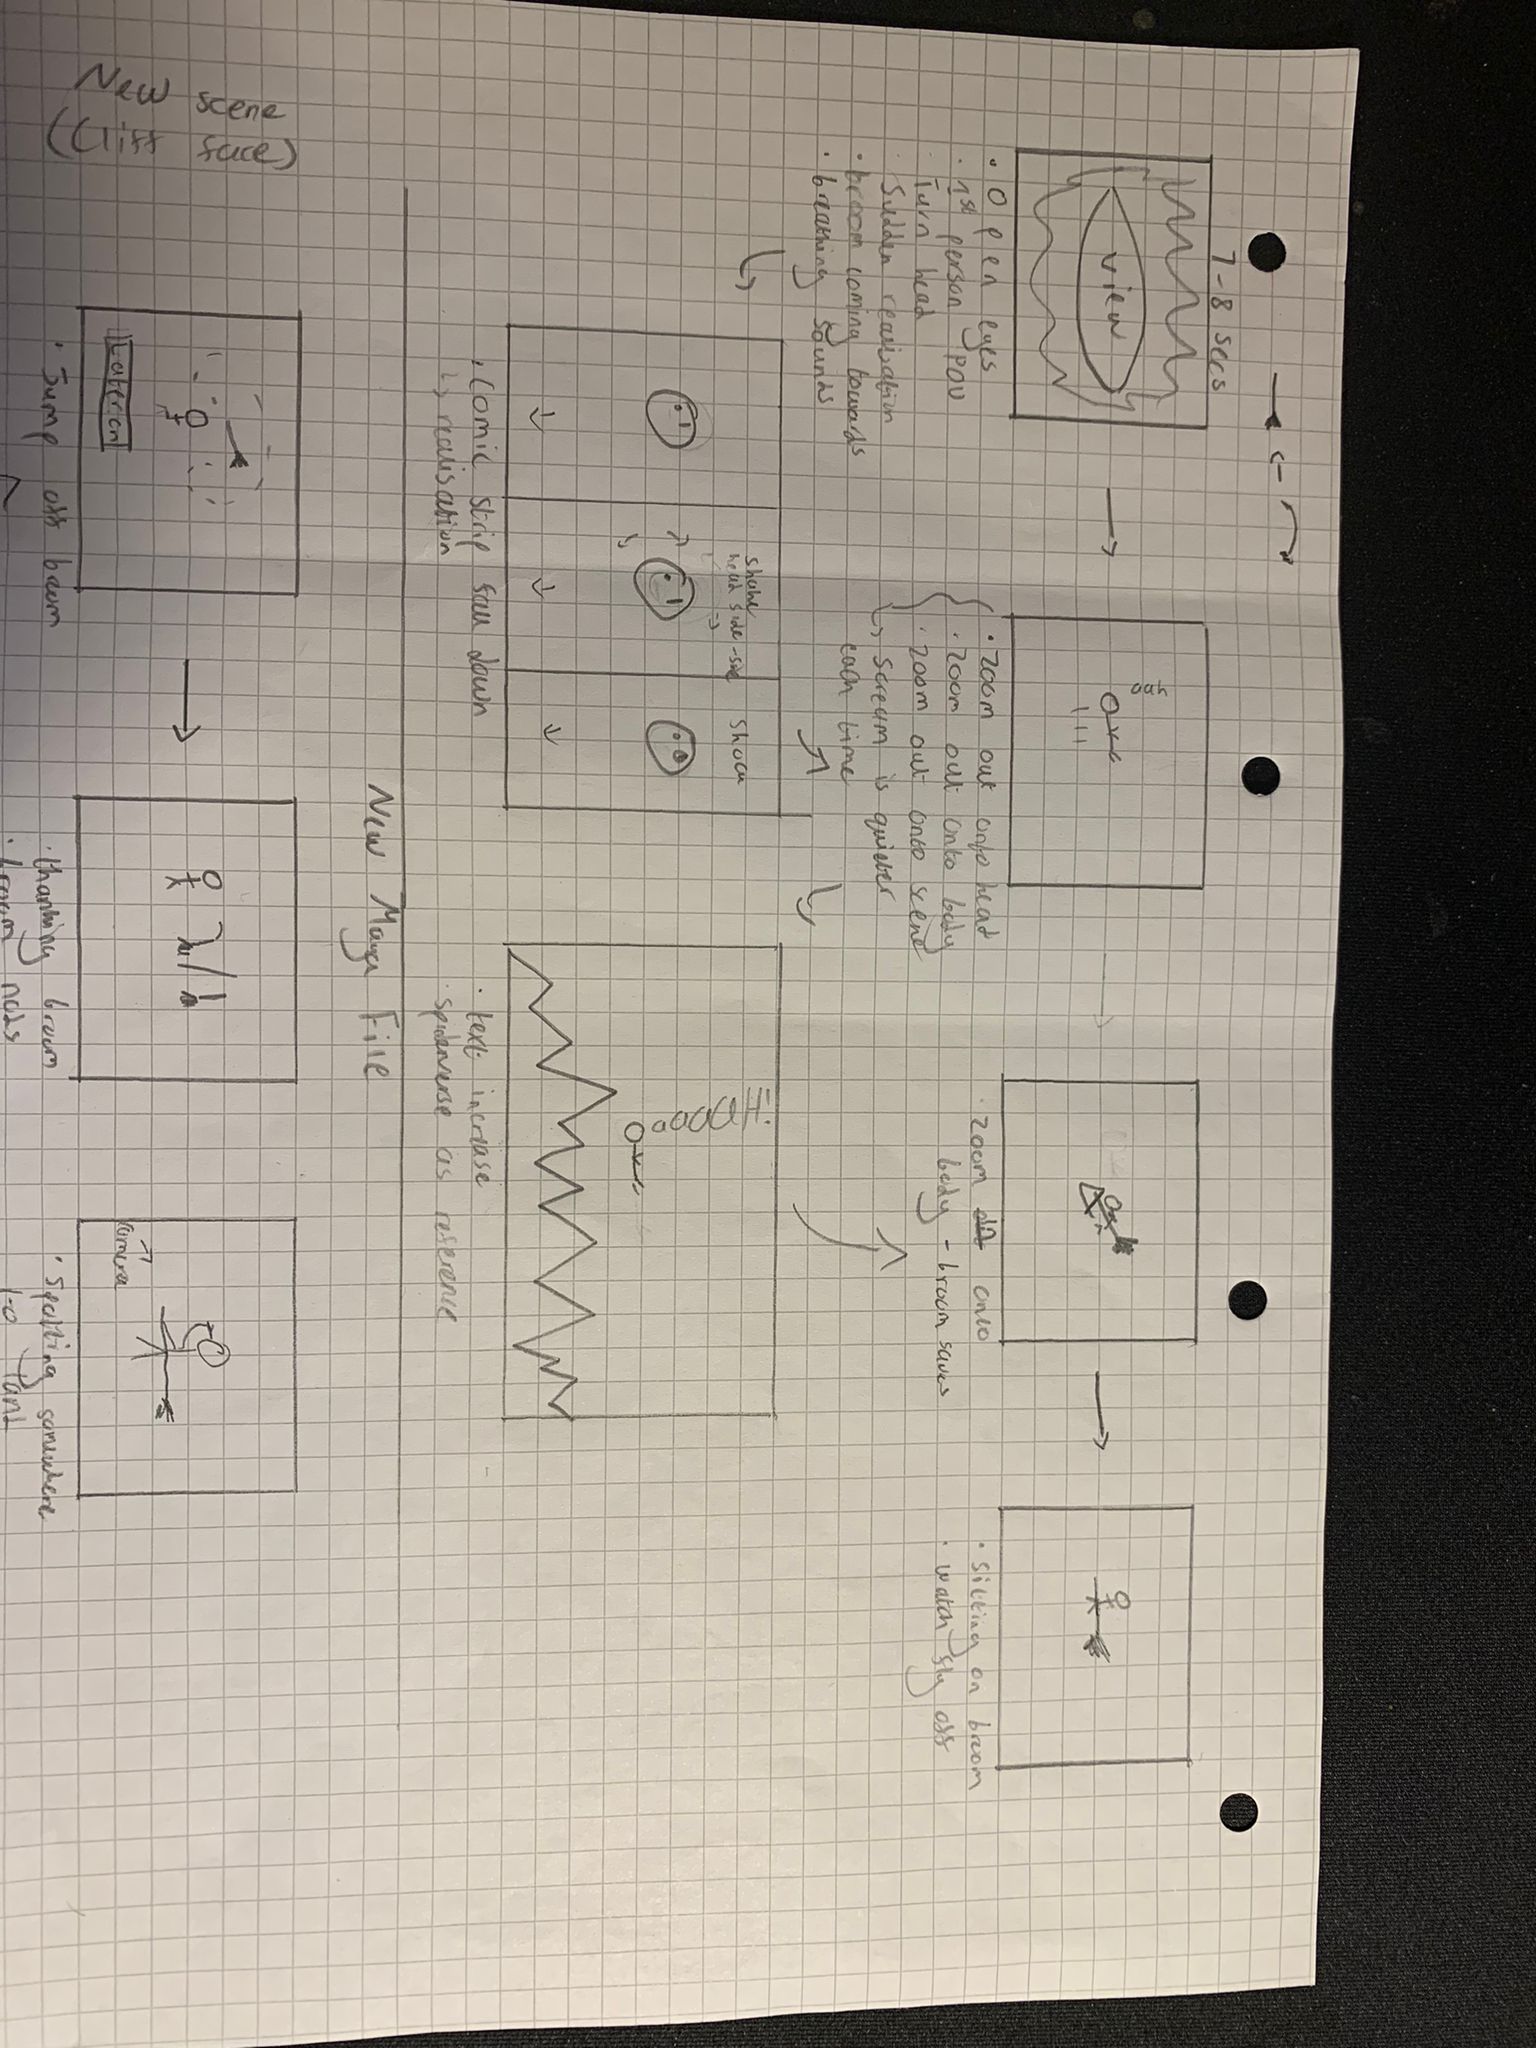 7-8 secs
view
• Open eyes
• 1st person POV
Turn head
Sudden realisation
• broom coming towards
• breathing sounds
aah
• zoom out onto head
• zoom out onto body
• zoom out onto scene
↳ scream is quieter
each time
zoom onto
body - broom saves
• Sitting on broom
• watch fly off
shake
head side-side
shock
• Comic strip fall down
↳ realisation
aaaaAH!
• text increase
• spiderverse as reference
New Maya File
New scene
(Cliff face)
Later on
• Jump off broom
• thanking broom
• broom nods
camera
• Spotting somewhere
to land